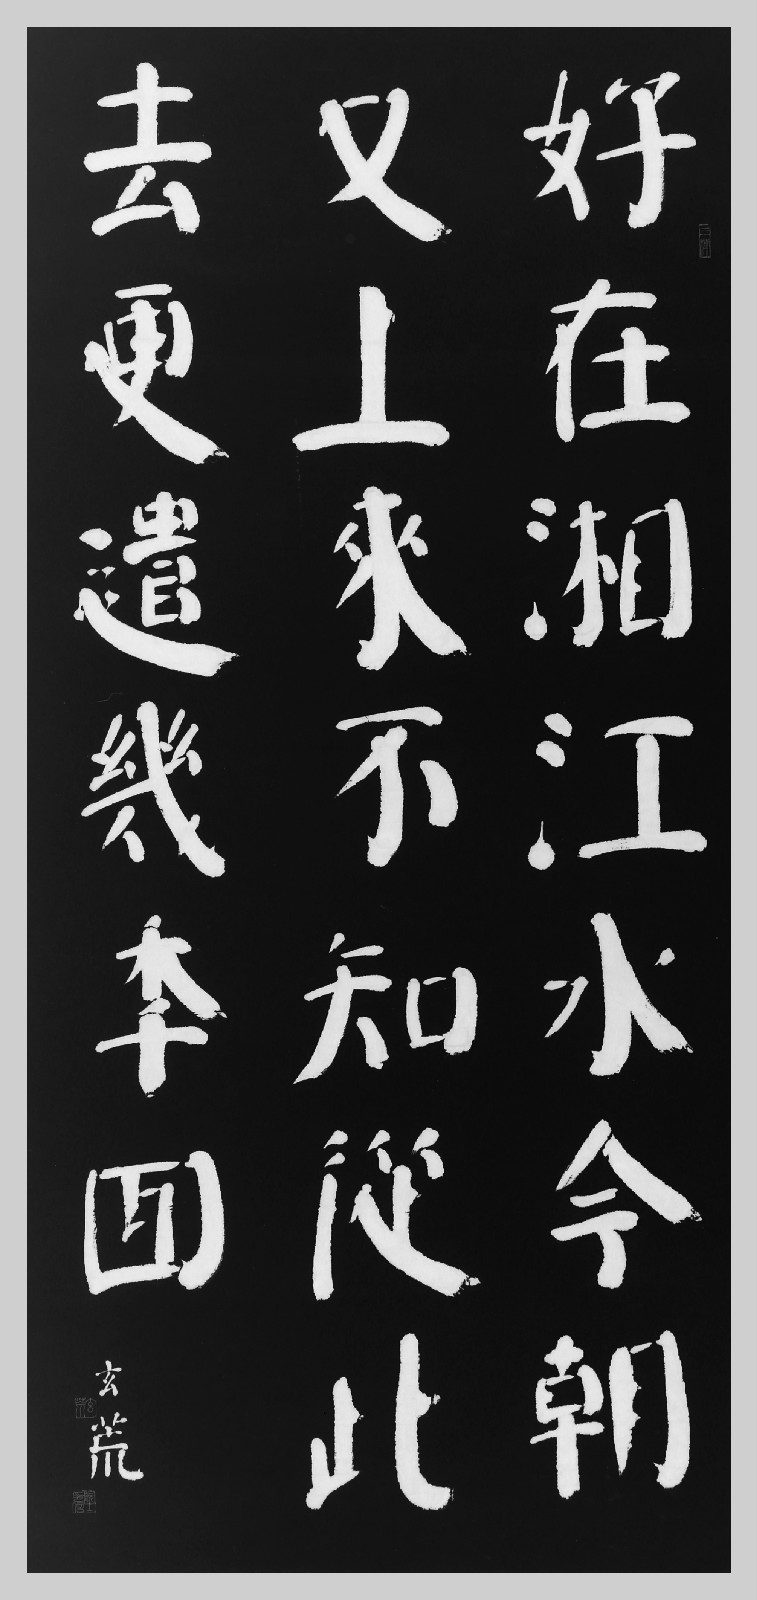 好在湘江水今朝
又上來不知從此
去更遣幾年回
玄荒